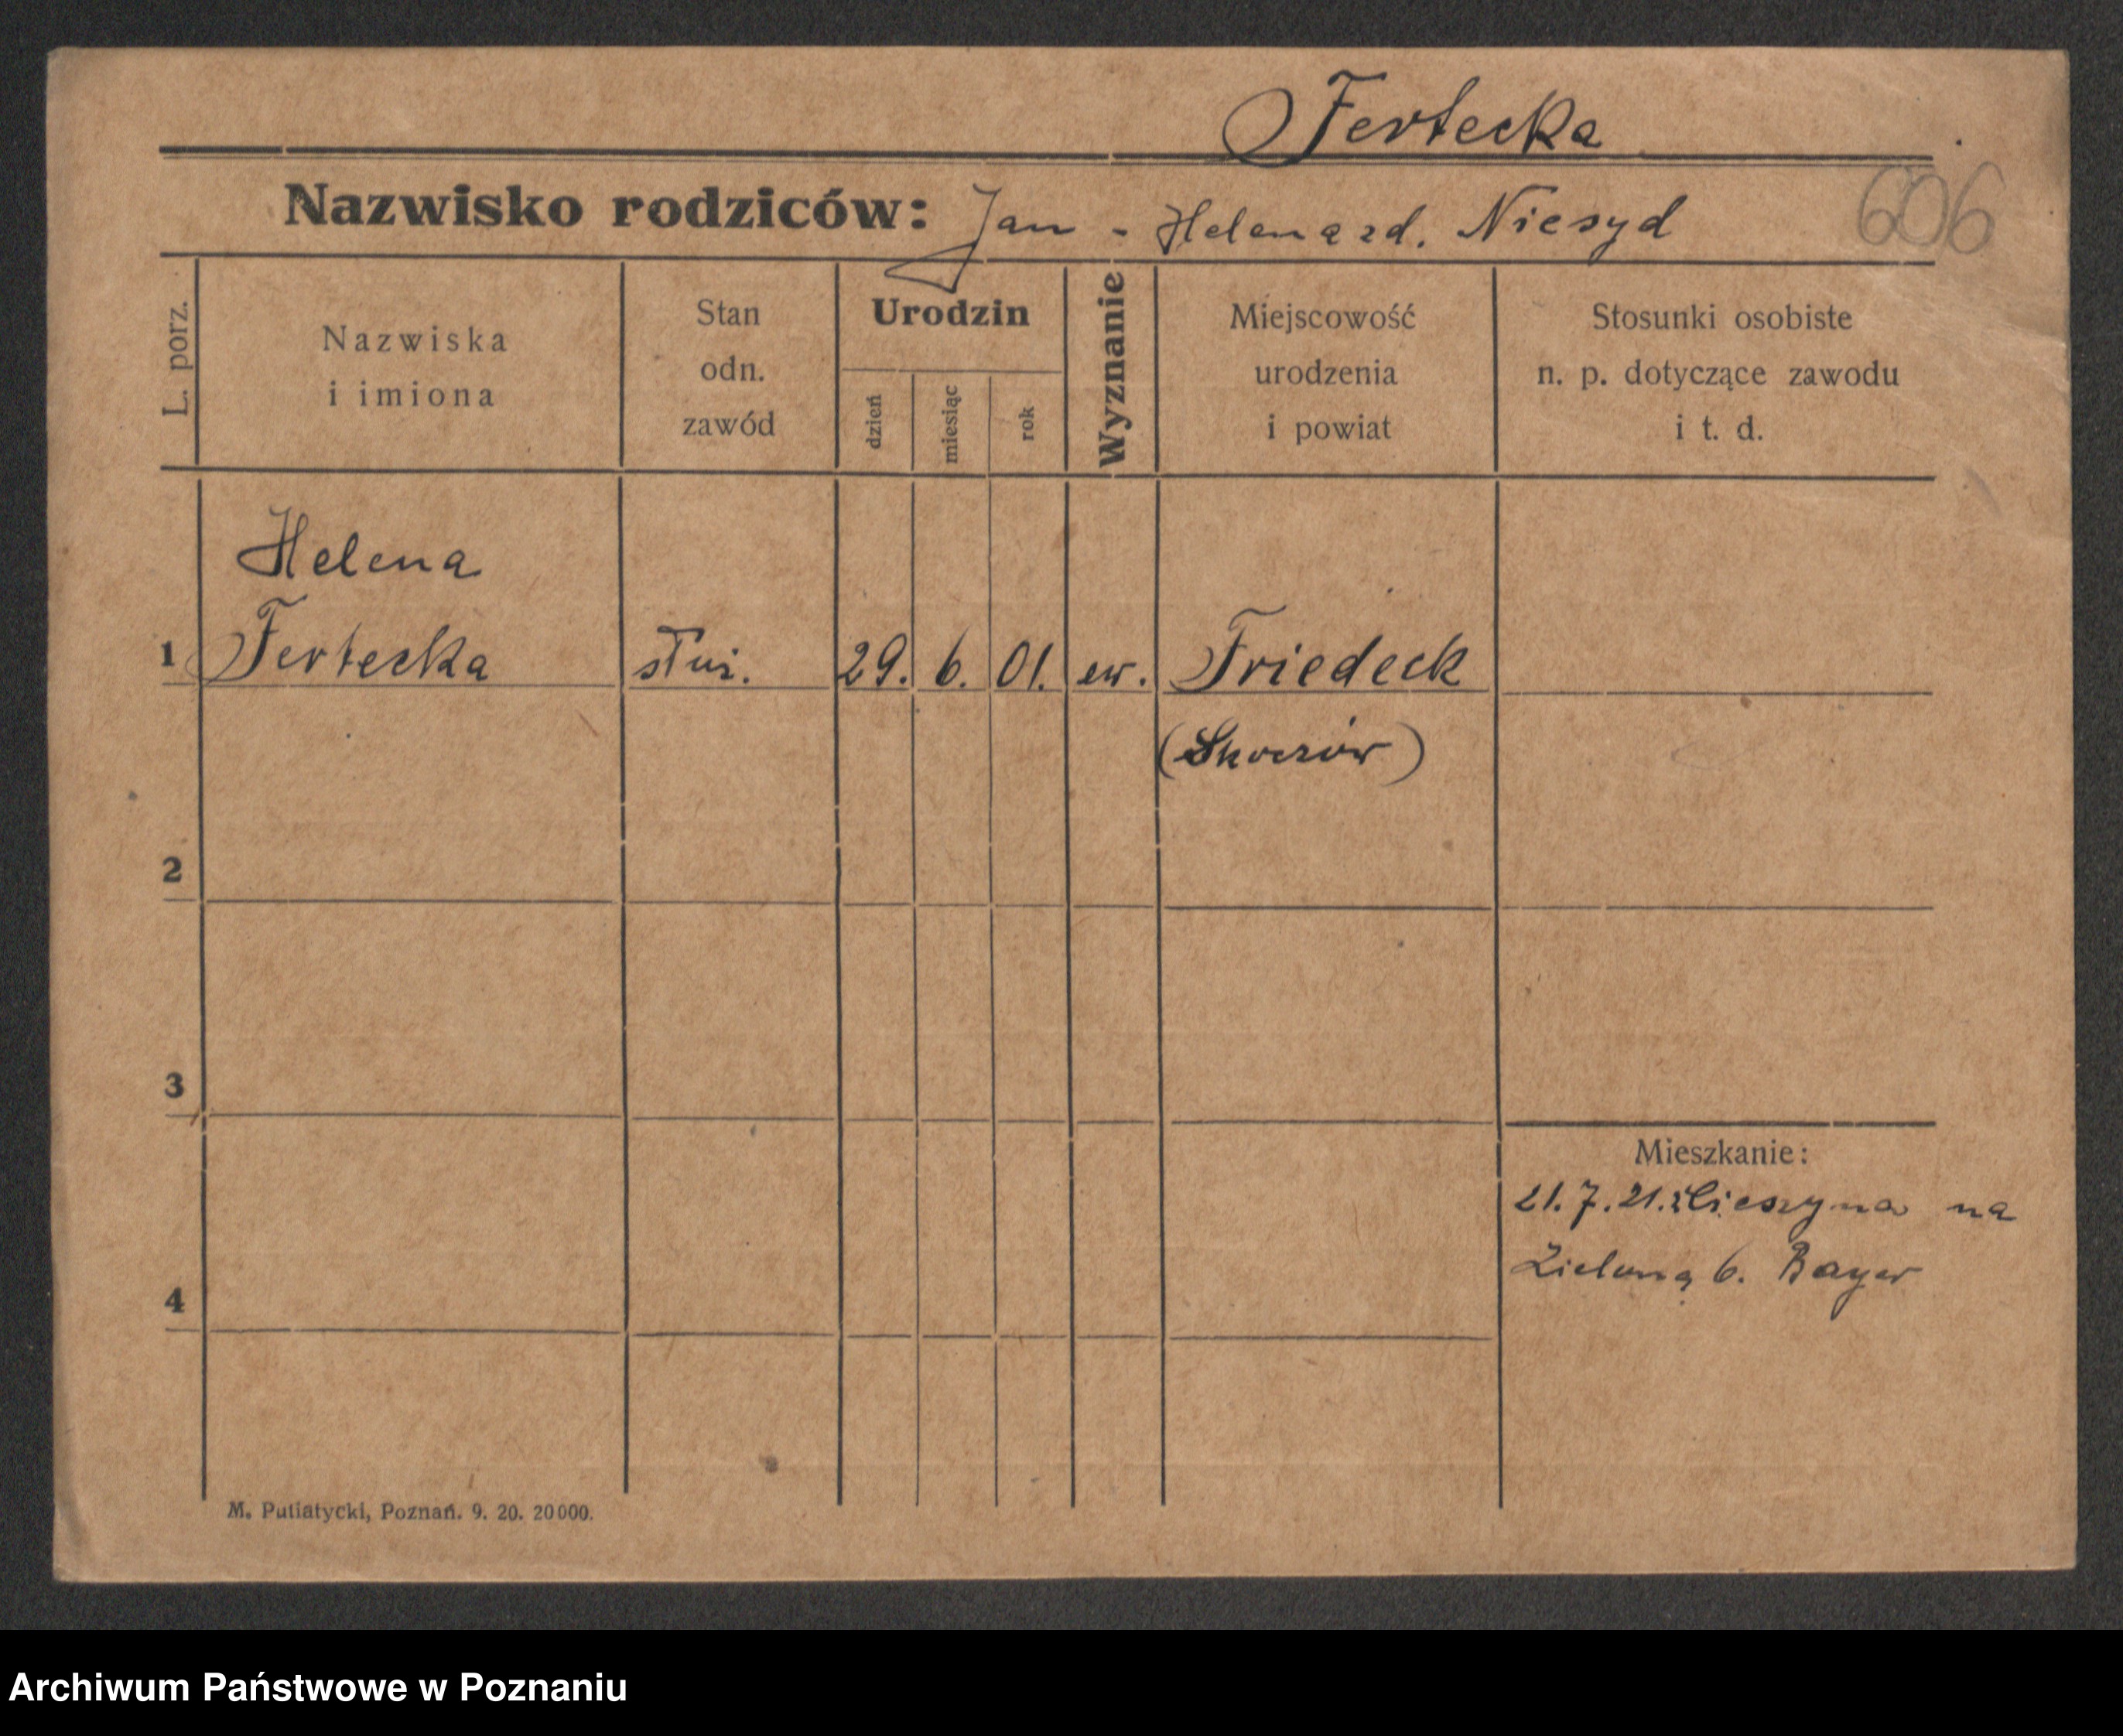 Fertecka
Nazwisko rodziców: Jan - Helena zd. Niesyd
606
L. porz.
Nazwiska
i imiona
Stan
odn.
zawód
Urodzin
dzień
miesiąc
rok
Wyznanie
Miejscowość
urodzenia
i powiat
Stosunki osobiste
n. p. dotyczące zawodu
i t. d.
Helena
1 Fertecka służ. 29. 6. 01. ew. Friedeck
(Skoczów)
2
3
Mieszkanie:
21.7.21. z Cieszyna na
Zieloną 6. Bayer
4
M. Putiatycki, Poznań. 9. 20. 20000.
Archiwum Państwowe w Poznaniu